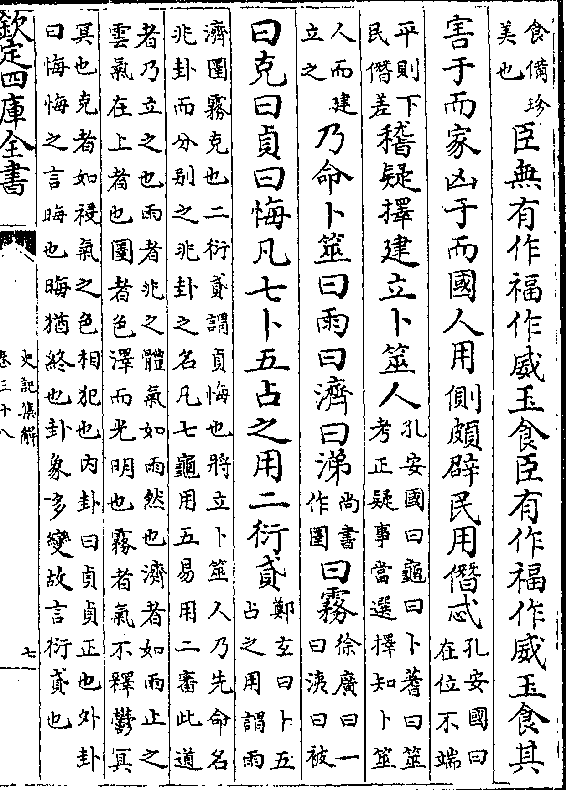 食備珍
美也
臣無有作福作威玉食臣有作福作威玉食其
害于而家凶于而國人用側頗辟民用僭忒
孔安國曰
在位不端
平則下
民僭差
稽疑擇建立卜筮人
孔安國曰龜曰卜蓍曰筮
考正疑事當選擇知卜筮
人而建
立之
乃命卜筮曰雨曰濟曰涕
尚書
作圛
曰霧
徐廣曰一
曰洟曰被
曰克曰貞曰悔凡七卜五占之用二衍貣
鄭玄曰卜五
占之用謂雨
濟圛霧克也二衍貣謂貞悔也將立卜筮人乃先命名
兆卦而分别之兆卦之名凡七龜用五易用二審此道
者乃立之也雨者兆之體氣如雨然也濟者如雨止之
雲氣在上者也圛者色澤而光明也霧者氣不釋鬱冥
冥也克者如祲氣之色相犯也内卦曰貞貞正也外卦
曰悔悔之言晦也晦猶終也卦象多變故言衍貣也
欽定四庫全書
史記集解
卷三十八
七